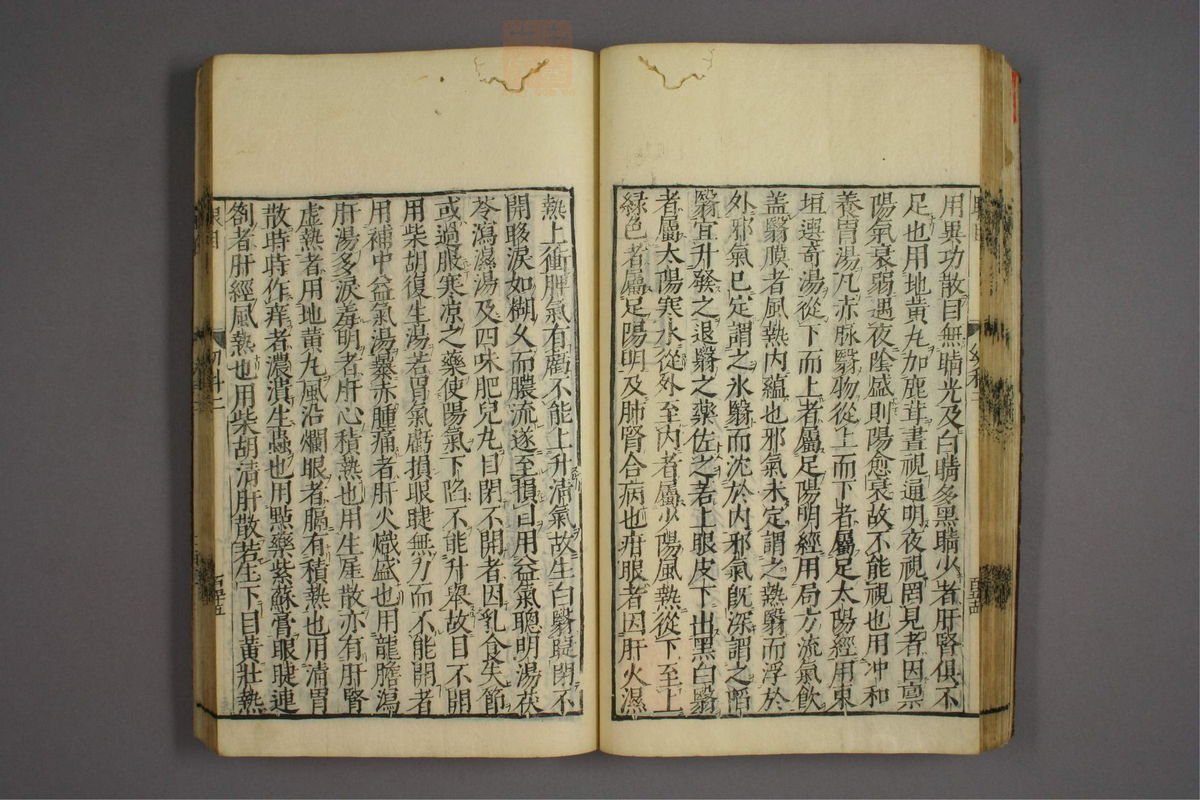 用異功散目無睛光及白睛多黑睛少者肝腎俱不
足也用地黄丸加鹿茸晝視通明夜視罔見者因禀
陽氣衰弱遇夜陰盛則陽愈衰故不能視也用冲和
養胃湯凡赤脉翳物從上而下者屬足太陽經用東
垣選竒湯從下而上者屬足陽明經用局方流氣飲
盖翳膜者風熱内藴也邪氣未定謂之熱翳而浮於
外邪氣已定謂之氷翳而沈於内邪氣旣深謂之陷
翳宜升發之退翳之藥佐之若上眼皮下出黑白翳
者屬太陽寒水從外至内者屬少陽風熱從下至上
緑色者屬足陽明及肺腎合病也疳眼者因肝火濕
熱上衝脾氣有虧不能上升清氣故生白翳睫閉不
開眵淚如糊久而膿流遂至損目用益氣聰明湯茯
苓瀉濕湯及四味肥兒丸目閉不開者因乳食失節
或過服寒凉之藥使陽氣下陷不能升舉故目不開
用柴胡復生湯若胃氣虧損眼睫無力而不能開者
用補中益氣湯暴赤腫痛者肝火熾盛也用龍膽瀉
肝湯多淚羞明者肝心積熱也用生犀散亦有肝腎
虚熱者用地黄丸風沿爛眼者膈有積熱也用清胃
散時時作痒者濃潰生蟲也用點藥紫蘇膏眼睫連
劄者肝經風熱也用柴胡清肝散若生下目黄壯熱
眼目
幼科二